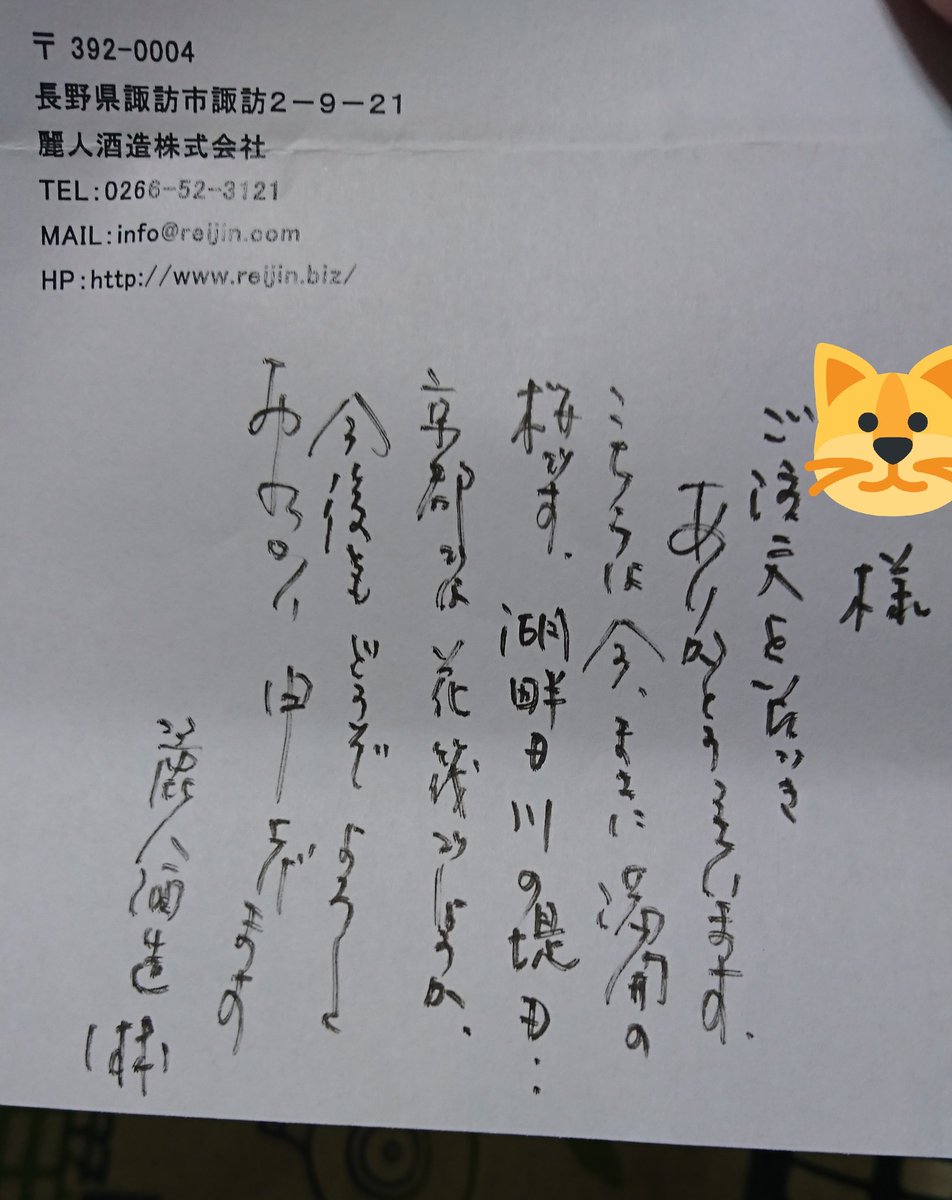 〒 392-0004
長野県諏訪市諏訪2-9-21
麗人酒造株式会社
TEL:0266-52-3121
MAIL:info@reijin.com
HP:http://www.reijin.biz/
様
ご注文を頂き
ありがとうございます。
こちらは今、まさに満開の
桜です。湖畔も川の堤も…
京都では花筏でしょうか。
今後もどうぞよろしく
お願い申し上げます
麗人酒造(株)